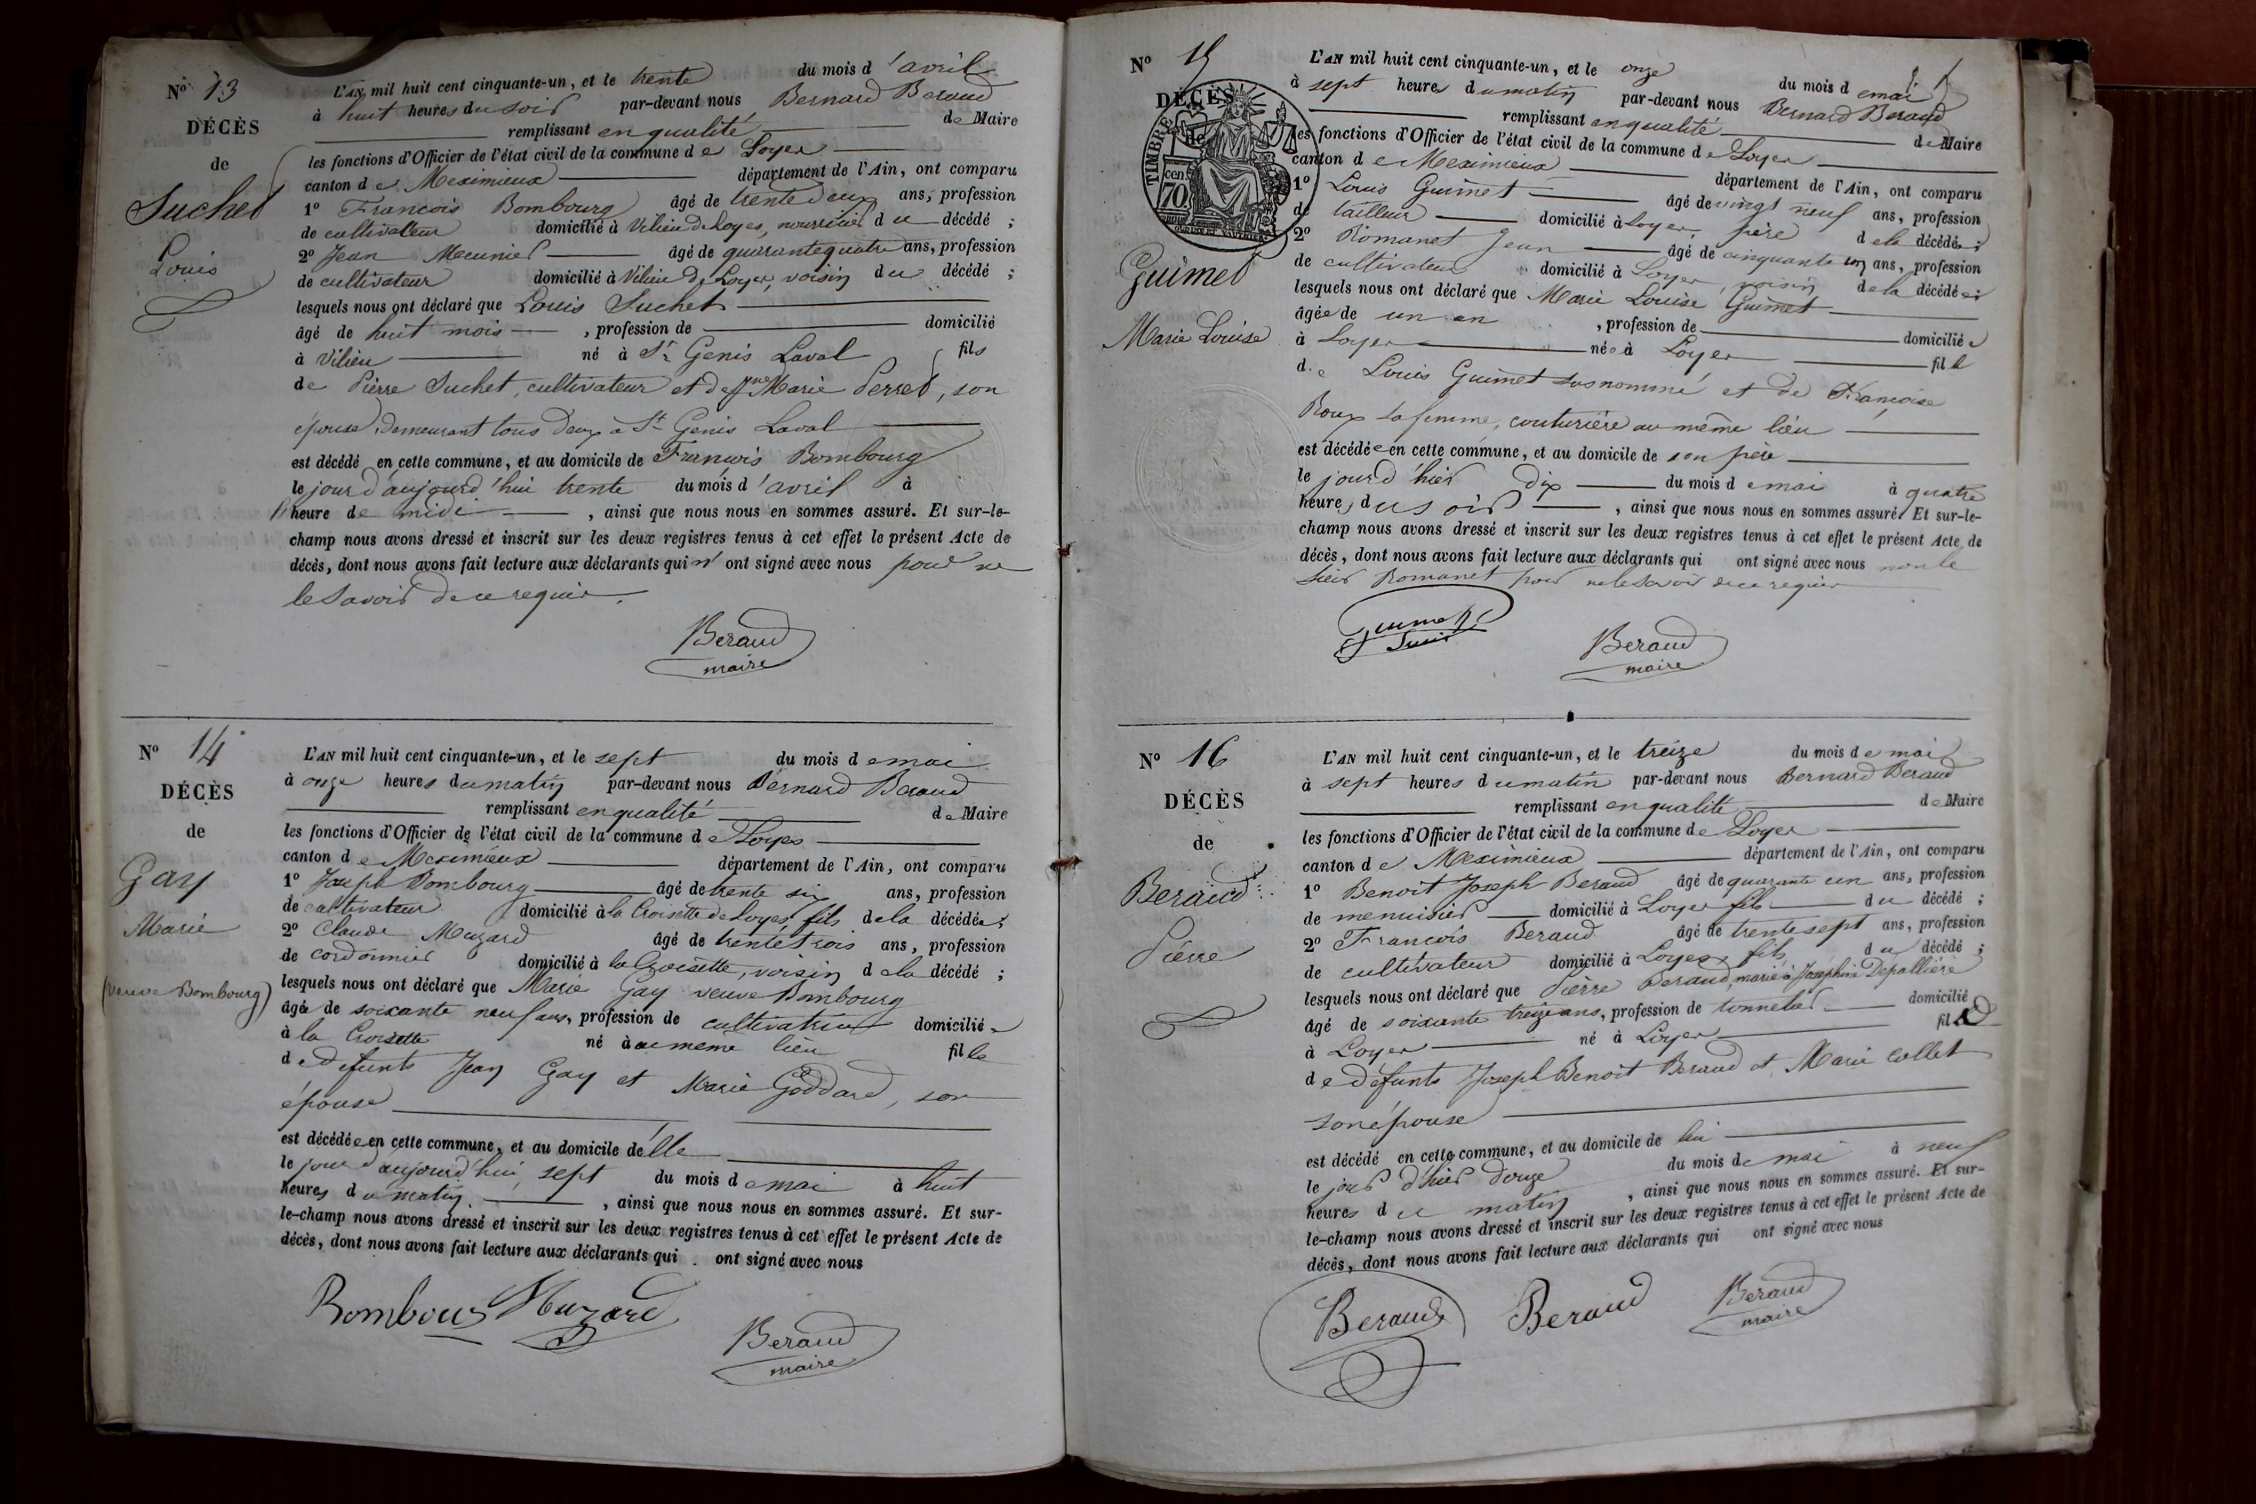 N° 13
DÉCÈS
de
Suchet
Louis
L'AN mil huit cent cinquante-un, et le trente du mois d'avril
à huit heures du soir par-devant nous Bernard Beraud
remplissant en qualité de Maire
les fonctions d'Officier de l'état civil de la commune de Loyes
canton de Meximieux département de l'Ain, ont comparu
1° Francois Bombourg âgé de trente deux ans, profession
de cultivateur domicilié à Vilieu de Loyes, nourricier du décédé ;
2° Jean Meunier âgé de quarante quatre ans, profession
de cultivateur domicilié à Vilieu de Loyes, voisin du décédé ;
lesquels nous ont déclaré que Louis Suchet
âgé de huit mois , profession de domicilié
à Vilieu né à St Genis Laval fils
de Pierre Suchet, cultivateur et de Marie Perret, son
épouse demeurant tous deux à St Genis Laval
est décédé en cette commune, et au domicile de Francois Bombourg
le jour d'aujourd'hui trente du mois d'avril à
heure de midi , ainsi que nous nous en sommes assuré. Et sur-le-
champ nous avons dressé et inscrit sur les deux registres tenus à cet effet le présent Acte de
décès, dont nous avons fait lecture aux déclarants qui n'ont signé avec nous pour ne
le savoir de ce requis.
Beraud
maire
N° 14
DÉCÈS
de
Gay
Marie
(veuve Bombourg)
L'AN mil huit cent cinquante-un, et le sept du mois de mai
à onze heures du matin par-devant nous Bernard Beraud
remplissant en qualité de Maire
les fonctions d'Officier de l'état civil de la commune de Loyes
canton de Meximieux département de l'Ain, ont comparu
1° Joseph Bombourg âgé de trente six ans, profession
de cultivateur domicilié à la Croisette de Loyes fils de la décédée ;
2° Claude Muzard âgé de trente trois ans, profession
de cordonnier domicilié à la Croisette, voisin de la décédé ;
lesquels nous ont déclaré que Marie Gay veuve Bombourg
âgée de soixante neuf ans, profession de cultivatrice domiciliée
à la Croisette né à au même lieu fille
de défunts Jean Gay et Marie Goddard, son
épouse
est décédée en cette commune, et au domicile d'elle
le jour d'aujourd'hui sept du mois de mai à huit
heures du matin , ainsi que nous nous en sommes assuré. Et sur-
le-champ nous avons dressé et inscrit sur les deux registres tenus à cet effet le présent Acte de
décès, dont nous avons fait lecture aux déclarants qui ont signé avec nous
Bombourg Muzard
Beraud
maire
N° 15
DÉCÈS
de
TIMBRE
70 cen.
Guimet
Marie Louise
L'AN mil huit cent cinquante-un, et le onze du mois de mai
à sept heures du matin par-devant nous Bernard Beraud
remplissant en qualité de Maire
les fonctions d'Officier de l'état civil de la commune de Loyes
canton de Meximieux département de l'Ain, ont comparu
1° Louis Guimet âgé de vingt neuf ans, profession
de tailleur domicilié à Loyes, père de la décédée ;
2° Romanet Jean âgé de cinquante un ans, profession
de cultivateur domicilié à Loyes, voisin de la décédée ;
lesquels nous ont déclaré que Marie Louise Guimet
âgée de un an , profession de domiciliée
à Loyes née à Loyes fille
de Louis Guimet susnommé et de Francoise
Roux sa femme, couturière au même lieu
est décédée en cette commune, et au domicile de son père
le jour d'hier dix du mois de mai à quatre
heures du soir , ainsi que nous nous en sommes assuré. Et sur-le-
champ nous avons dressé et inscrit sur les deux registres tenus à cet effet le présent Acte de
décès, dont nous avons fait lecture aux déclarants qui ont signé avec nous non le
sieur Romanet pour ne le savoir de ce requis
Guimet
Beraud
maire
N° 16
DÉCÈS
de
Beraud
Pierre
L'AN mil huit cent cinquante-un, et le treize du mois de mai
à sept heures du matin par-devant nous Bernard Beraud
remplissant en qualité de Maire
les fonctions d'Officier de l'état civil de la commune de Loyes
canton de Meximieux département de l'Ain, ont comparu
1° Benoit Joseph Beraud âgé de quarante un ans, profession
de menuisier domicilié à Loyes fils du décédé ;
2° Francois Beraud âgé de trente sept ans, profession
de cultivateur domicilié à Loyes fils du décédé ;
lesquels nous ont déclaré que Pierre Beraud, marié à Josephine Depallière
âgé de soixante treize ans, profession de tonnelier domicilié
à Loyes né à Loyes fils
de défunts Joseph Benoit Beraud et Marie Collet
son épouse
est décédé en cette commune, et au domicile de lui
le jour d'hier douze du mois de mai à neuf
heures du matin , ainsi que nous nous en sommes assuré. Et sur-
le-champ nous avons dressé et inscrit sur les deux registres tenus à cet effet le présent Acte de
décès, dont nous avons fait lecture aux déclarants qui ont signé avec nous
Beraud Beraud
Beraud
maire